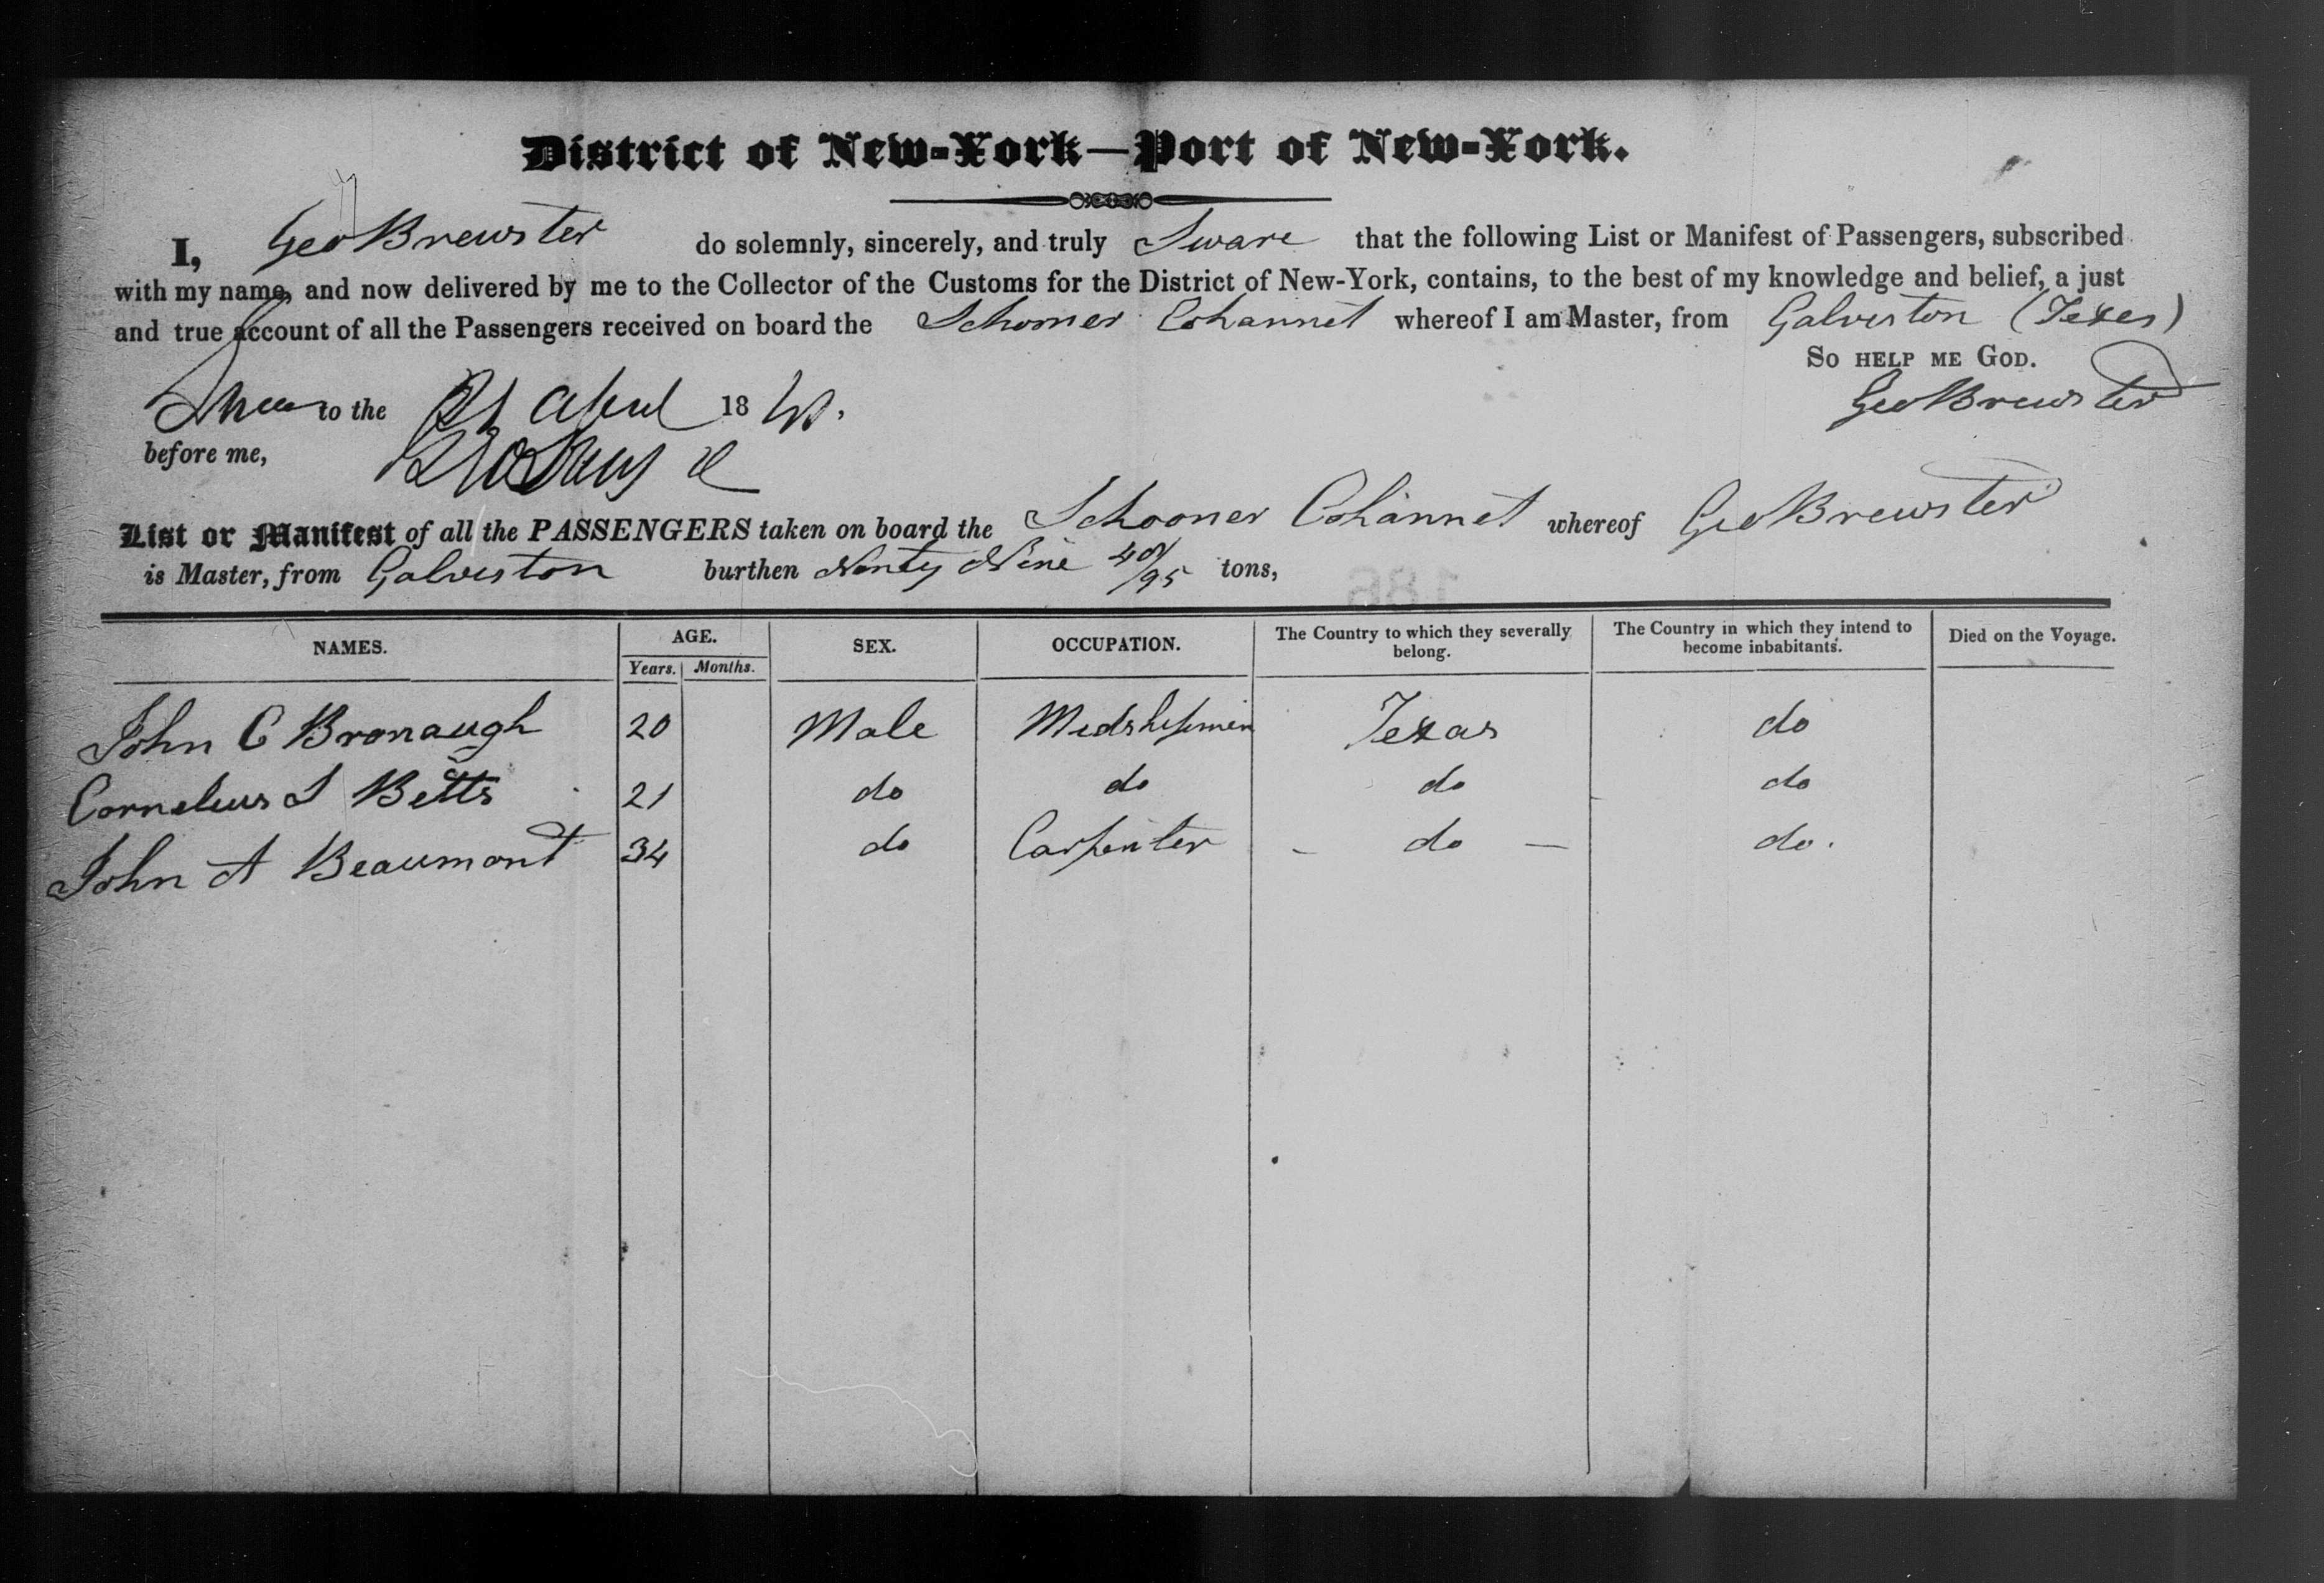 District of New-York—Port of New-York.
I, Geo Brewster do solemnly, sincerely, and truly Sware that the following List or Manifest of Passengers, subscribed
with my name, and now delivered by me to the Collector of the Customs for the District of New-York, contains, to the best of my knowledge and belief, a just
and true account of all the Passengers received on board the Schooner Cohannet whereof I am Master, from Galveston (Texes)
So help me God.
to the 21 April 1840. Geo Brewster
before me,
List or Manifest of all the PASSENGERS taken on board the Schooner Cohannet whereof Geo Brewster
is Master, from Galveston burthen Ninty Nine 40/95 tons,
186
NAMES. AGE. SEX. OCCUPATION. The Country to which they severally belong. The Country in which they intend to become inhabitants. Died on the Voyage.
Years. Months.
John C Bronaugh 20 Male Midshipman Texas do
Cornelius S Betts 21 do do do do
John A Beaumont 34 do Carpenter - do — do.